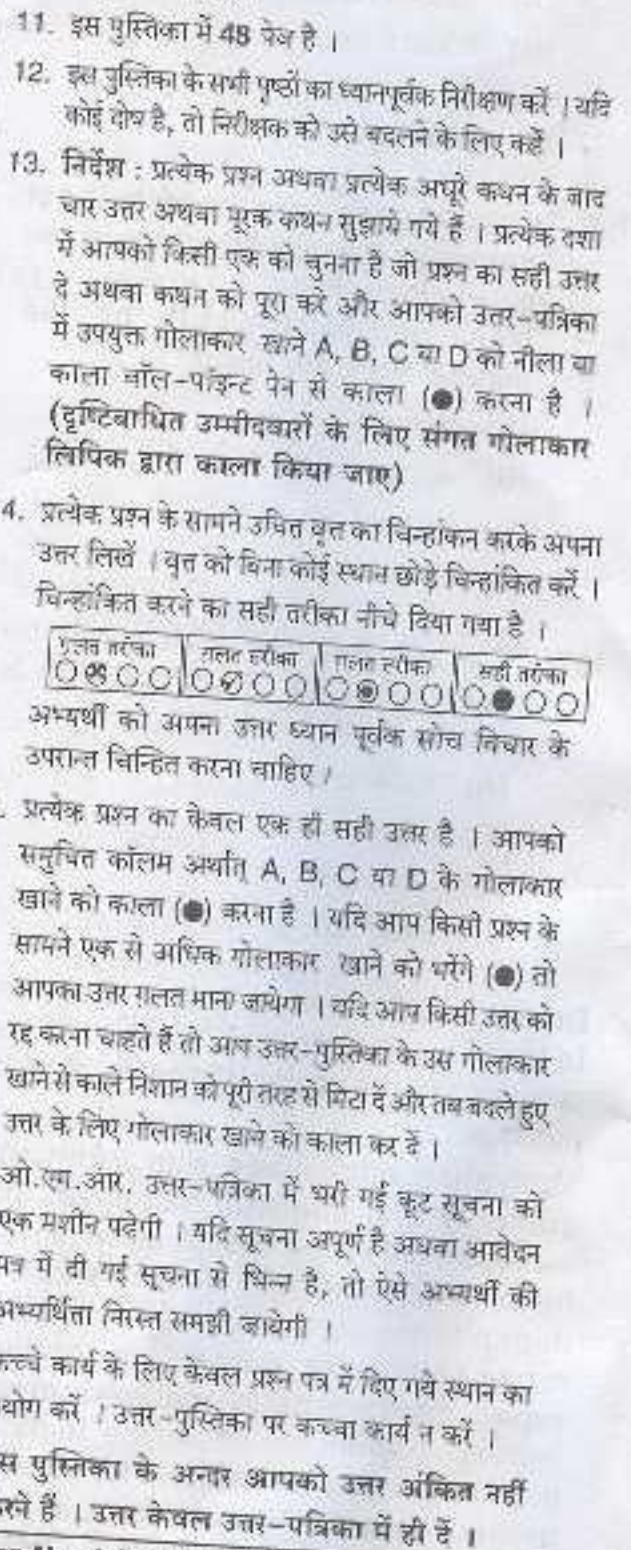 11. इस पुस्तिका में 48 पेज है ।
12. इस पुस्तिका के सभी पृष्ठों का ध्यानपूर्वक निरीक्षण करें । यदि
कोई दोष है, तो निरीक्षक को उसे बदलने के लिए कहें ।
13. निर्देश : प्रत्येक प्रश्न अथवा प्रत्येक अधूरे कथन के बाद
चार उत्तर अथवा पूरक कथन सुझाये गये हैं । प्रत्येक दशा
में आपको किसी एक को चुनना है जो प्रश्न का सही उत्तर
दे अथवा कथन को पूरा करे और आपको उत्तर-पत्रिका
में उपयुक्त गोलाकार खाने A, B, C या D को नीला या
काला बॉल-पॉइन्ट पेन से काला (●) करना है ।
(दृष्टिबाधित उम्मीदवारों के लिए संगत गोलाकार
लिपिक द्वारा काला किया जाए)
4. प्रत्येक प्रश्न के सामने उचित वृत का चिन्हांकन करके अपना
उत्तर लिखें । वृत को बिना कोई स्थान छोड़े चिन्हांकित करें ।
चिन्हांकित करने का सही तरीका नीचे दिया गया है ।
ग़लत तरीका ग़लत तरीका ग़लत तरीका सही तरीका
अभ्यर्थी को अपना उत्तर ध्यान पूर्वक सोच विचार के
उपरान्त चिन्हित करना चाहिए ।
. प्रत्येक प्रश्न का केवल एक ही सही उत्तर है । आपको
समुचित कॉलम अर्थात् A, B, C या D के गोलाकार
खाने को काला (●) करना है । यदि आप किसी प्रश्न के
सामने एक से अधिक गोलाकार खाने को भरेंगे (●) तो
आपका उत्तर ग़लत माना जायेगा । यदि आप किसी उत्तर को
रद्द करना चाहते हैं तो आप उत्तर-पुस्तिका के उस गोलाकार
खाने से काले निशान को पूरी तरह से मिटा दें और तब बदले हुए
उत्तर के लिए गोलाकार खाने को काला कर दें ।
ओ.एम.आर. उत्तर-पत्रिका में भरी गई कूट सूचना को
एक मशीन पढेगी । यदि सूचना अपूर्ण है अथवा आवेदन
पत्र में दी गई सूचना से भिन्न है, तो ऐसे अभ्यर्थी की
अभ्यर्थिता निरस्त समझी जायेगी ।
कच्चे कार्य के लिए केवल प्रश्न पत्र में दिए गये स्थान का
योग करें । उत्तर-पुस्तिका पर कच्चा कार्य न करें ।
स पुस्तिका के अन्दर आपको उत्तर अंकित नहीं
रने हैं । उत्तर केवल उत्तर-पत्रिका में ही दें ।